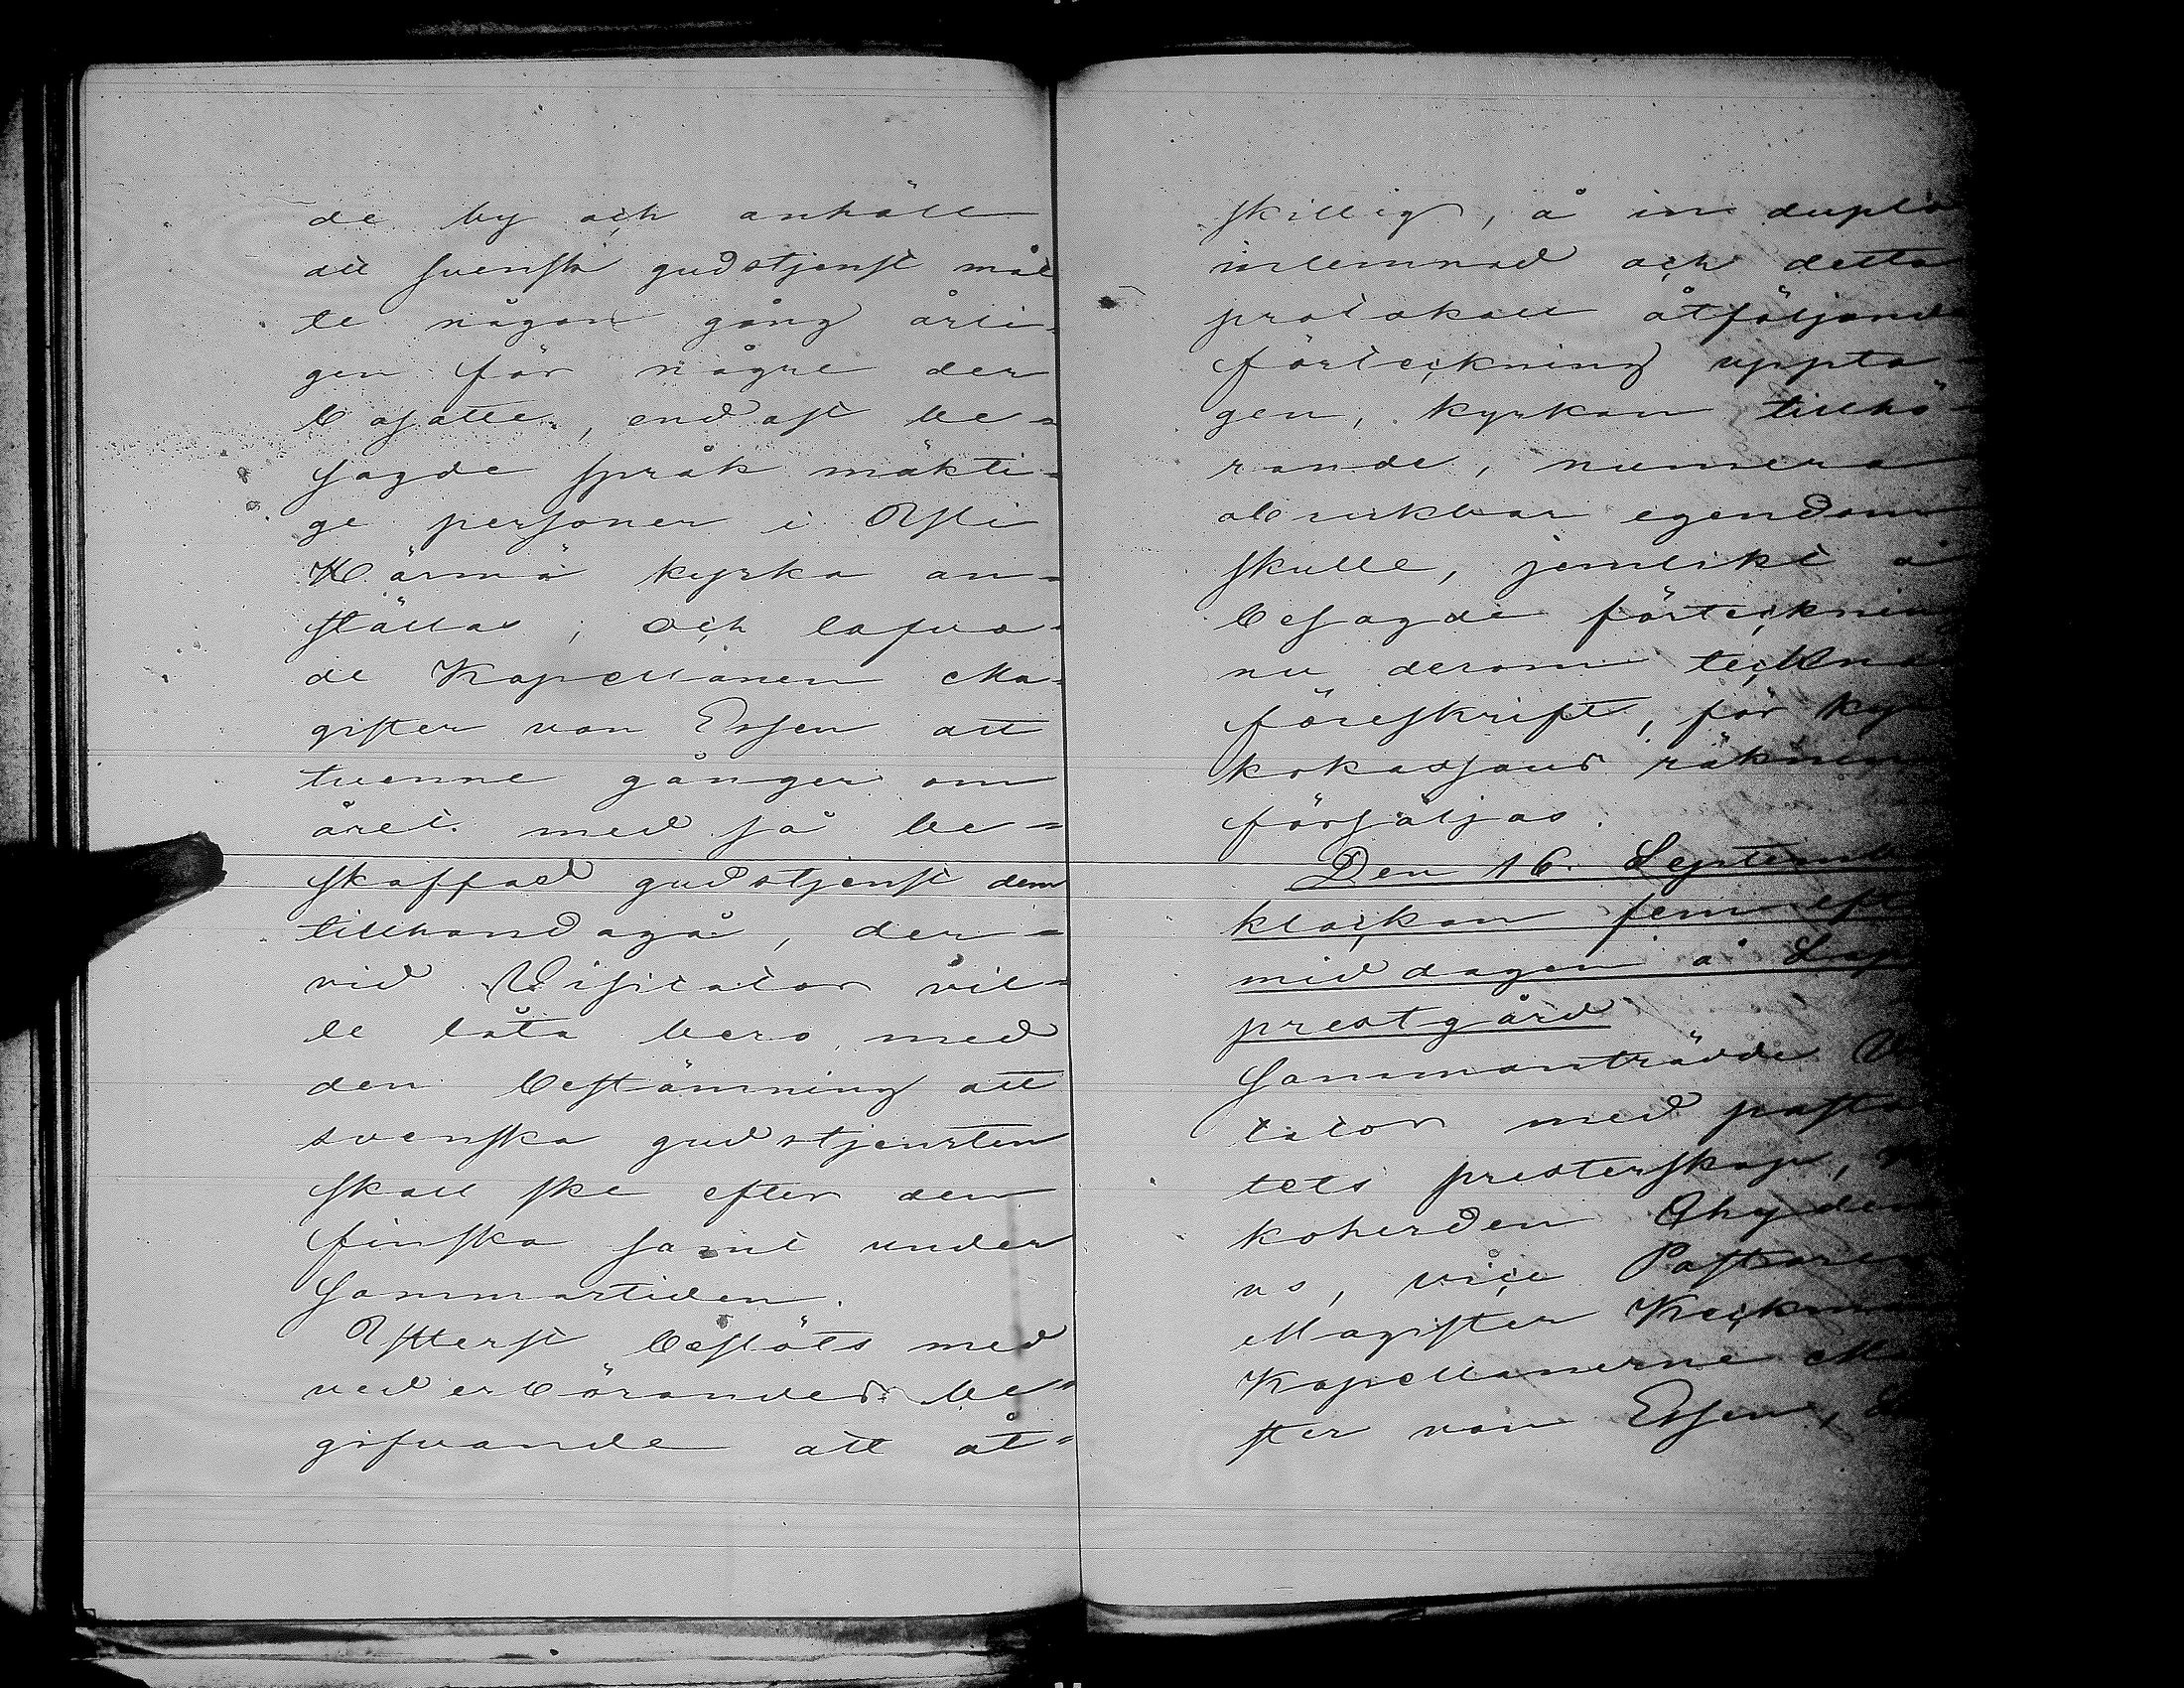 de by och anhöll
att svensk gudstjenst måt
te någon gång årli-
gen för någre der
bosatte, endast be-
sagde språk mäkti-
ge personer i Ylli
Härmä kyrka an-
ställas; och lofva-
de Kapellanen Ma-
gister von Essen att
tvenne gånger om
året med så be-
skaffad gudstjenst dem
tillhandagå, der-
vid Visitator vil-
le låta bero, med
den bestämning att
svenska gudstjensten
skall ske efter den
finska samt under
sommartiden.
Ytterst beslöts med
vederbörandes be-
gifvande att åt-
skillig, å in duplo
inlemnad och detta
protokoll åtföljande
förteckning uppta-
gen, kyrkan tillhö-
rande, numera
obrukbar egendom
skulle, jemlikt å
besagde förteckning
nu derom
föreskrift, för kyr
kokassans räkning
försäljas.
Den 16. Septemb
klockan fem eft
middagen å Lap
prestgård
Sammanträdde Vi
tator med pasto
tets presterskap,
koherden Chyden
us, vice Pastoren
Magister Keckman
Kapellanerne M
ster von Essen,